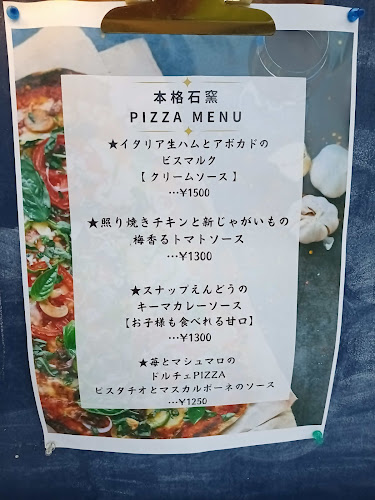 本格石窯
PIZZA MENU
★イタリア生ハムとアボカドの
ビスマルク
【クリームソース】
…¥1500
★照り焼きチキンと新じゃがいもの
梅香るトマトソース
…¥1300
★スナップえんどうの
キーマカレーソース
【お子様も食べれる甘口】
…¥1300
★苺とマシュマロの
ドルチェPIZZA
ピスタチオとマスカルポーネのソース
…¥1250